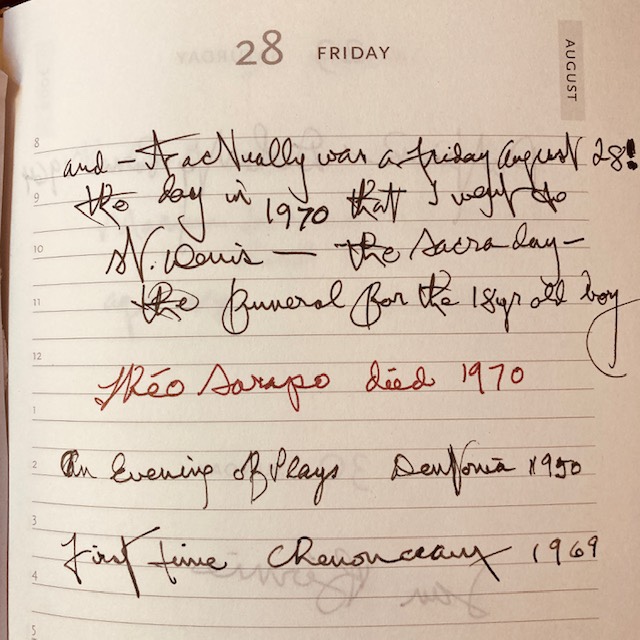 28 FRIDAY
AUGUST
8
and – It actually was a friday august 28!
9
the day in 1970 that I went to
10
St. Denis — the Sacra day –
11
the funeral for the 18yr old boy
12
Théo Sarapo died 1970
1
2
An Evening of Plays Denfonia 1950
3
first time Chenonceaux 1969
4
5